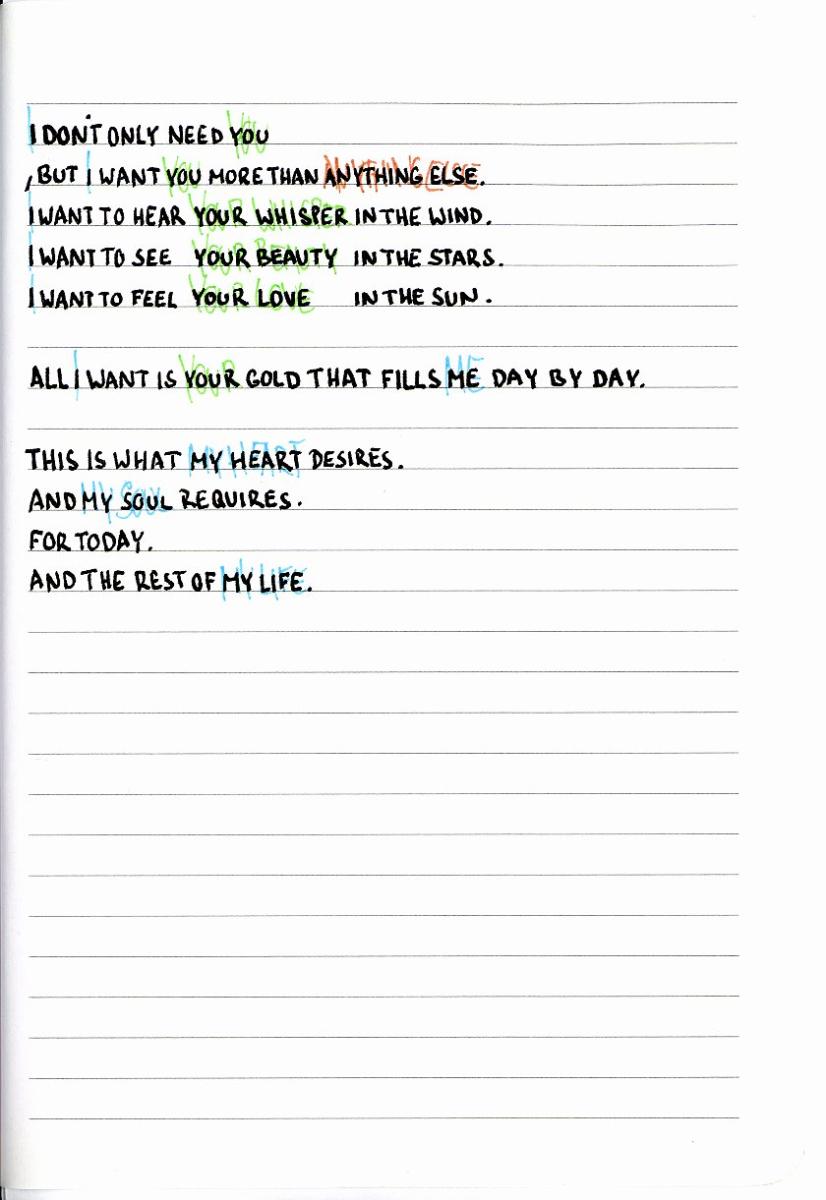 I DON'T ONLY NEED YOU
, BUT I WANT YOU MORE THAN ANYTHING ELSE.
I WANT TO HEAR YOUR WHISPER IN THE WIND.
I WANT TO SEE YOUR BEAUTY IN THE STARS.
I WANT TO FEEL YOUR LOVE IN THE SUN.
ALL I WANT IS YOUR GOLD THAT FILLS ME DAY BY DAY.
THIS IS WHAT MY HEART DESIRES.
AND MY SOUL REQUIRES.
FOR TODAY.
AND THE REST OF MY LIFE.